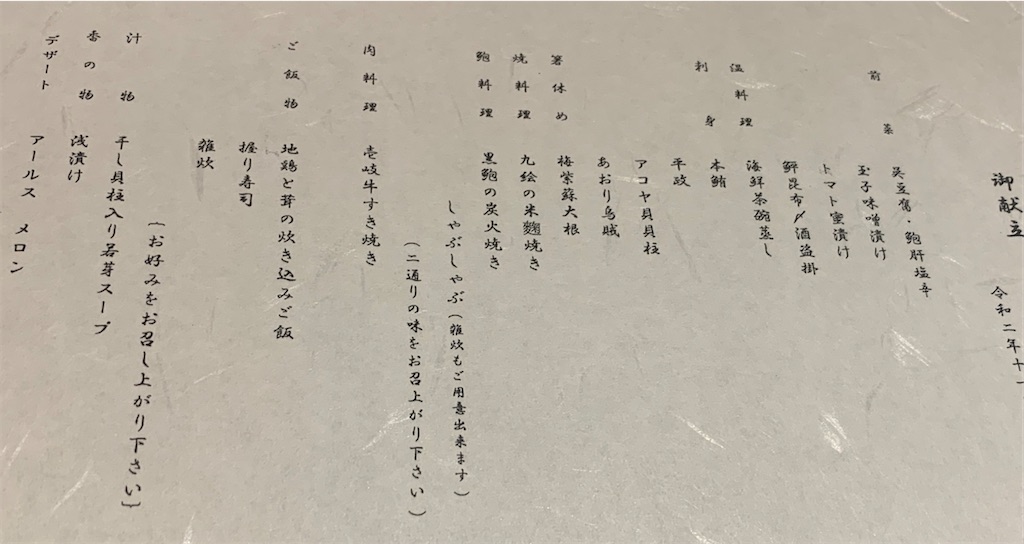 御献立 令和二年十一
前菜 呉豆腐・鮑肝塩辛
玉子味噌漬け
トマト蜜漬け
鮃昆布〆酒盗掛
温料理 海鮮茶碗蒸し
刺身 本鮪
平政
アコヤ貝貝柱
あおり烏賊
箸休め 梅紫蘇大根
焼料理 九絵の米麹焼き
鮑料理 黒鮑の炭火焼き
しゃぶしゃぶ(雑炊もご用意出来ます)
(二通りの味をお召上がり下さい)
肉料理 壱岐牛すき焼き
ご飯物 地鶏と茸の炊き込みご飯
握り寿司
雑炊
(お好みをお召し上がり下さい)
汁物 干し貝柱入り若芽スープ
香の物 浅漬け
デザート アールス メロン